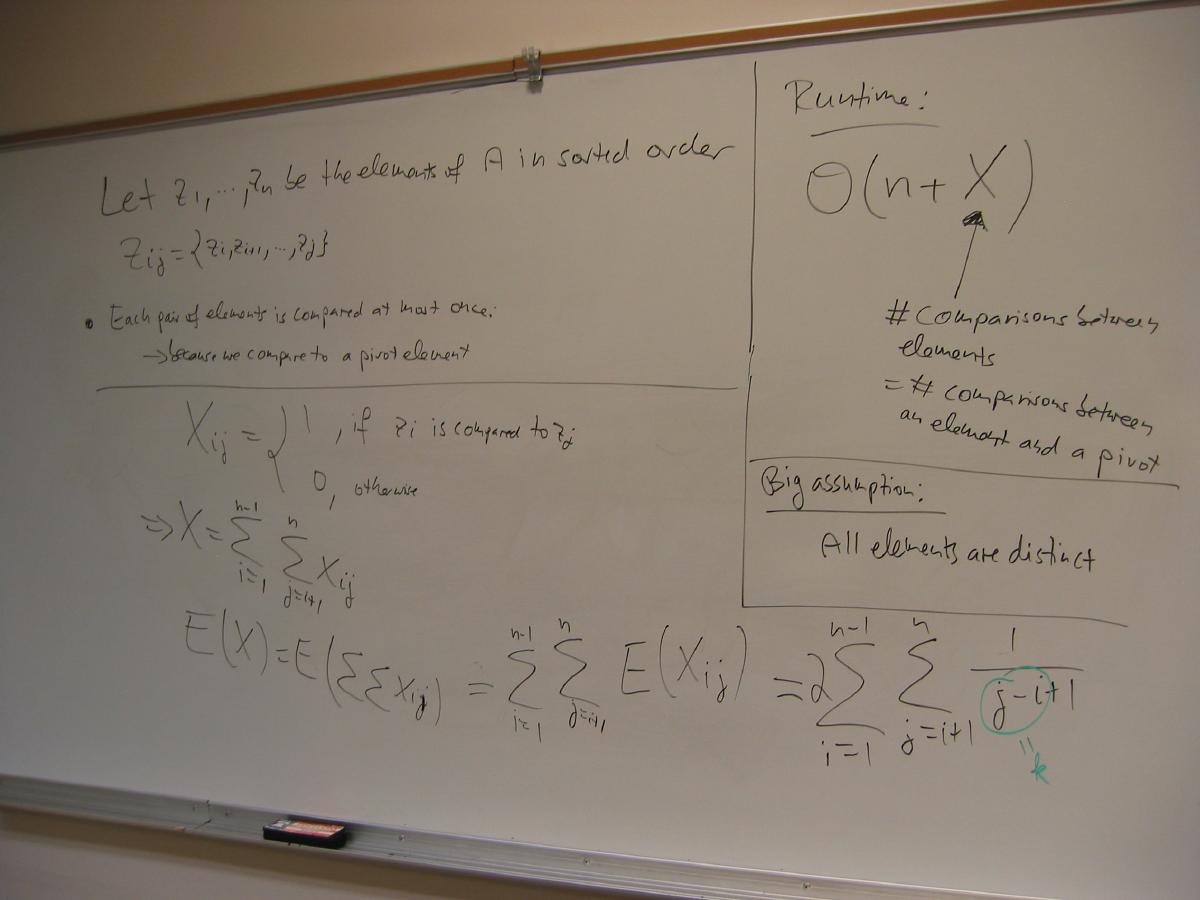 Let z₁, ..., zₙ be the elements of A in sorted order
Zᵢⱼ = {zᵢ, zᵢ₊₁, ..., zⱼ}
• Each pair of elements is compared at most once:
→ because we compare to a pivot element
Xᵢⱼ = { 1, if zᵢ is compared to zⱼ
0, otherwise
⇒ X = ∑_{i=1}^{n-1} ∑_{j=i+1}^{n} Xᵢⱼ
E(X) = E(∑∑ Xᵢⱼ) = ∑_{i=1}^{n-1} ∑_{j=i+1}^{n} E(Xᵢⱼ) = 2 ∑_{i=1}^{n-1} ∑_{j=i+1}^{n} 1/(j-i+1)
= k
Runtime:
O(n + X)
# comparisons between
elements
= # comparisons between
an element and a pivot
Big assumption:
All elements are distinct